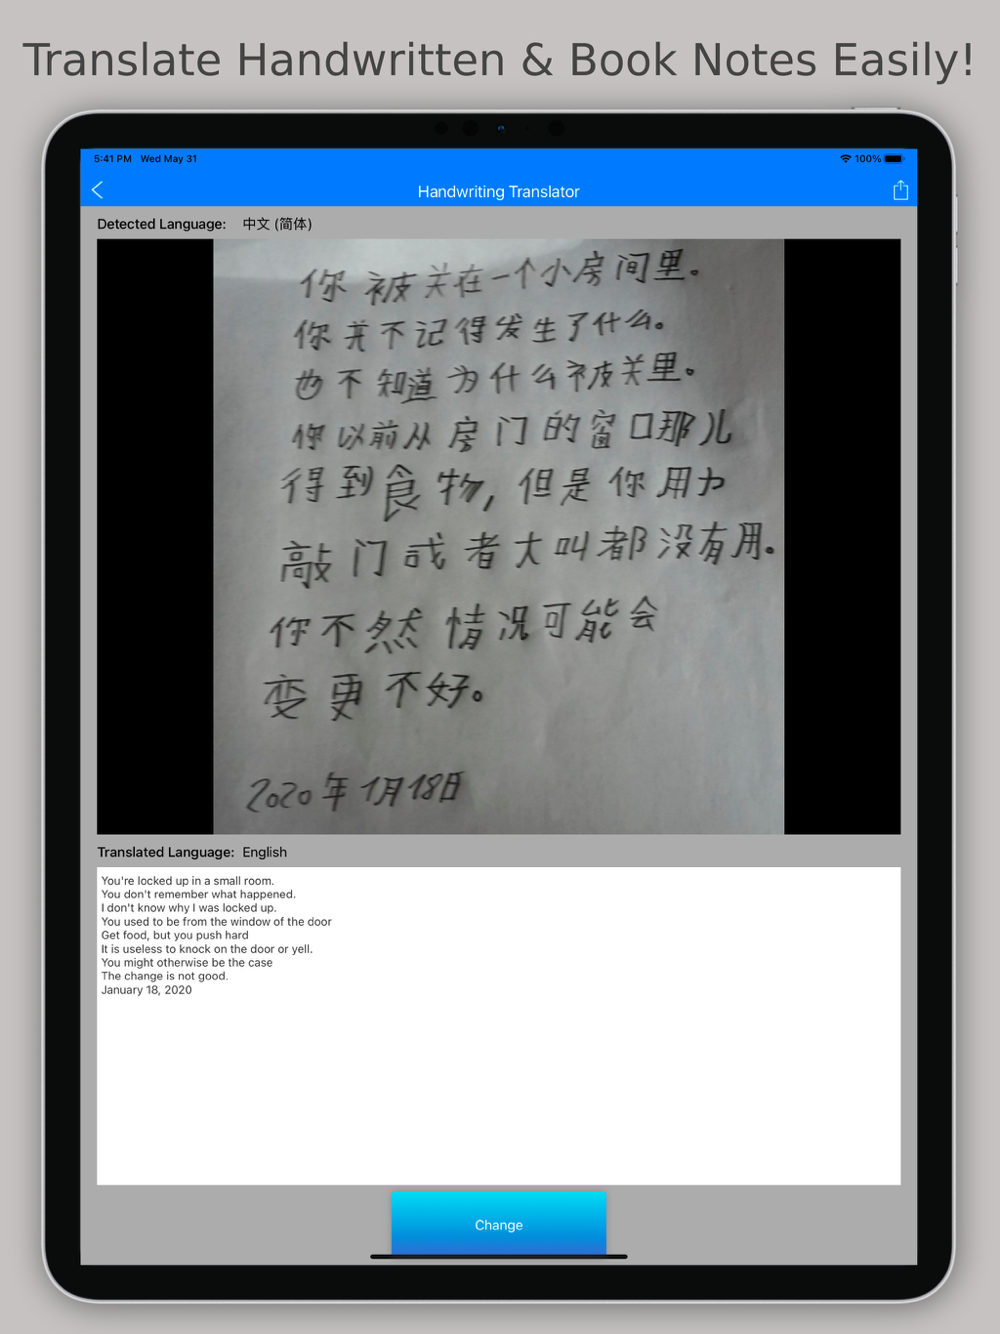 Translate Handwritten & Book Notes Easily!
5:41 PM Wed May 31
100%
Handwriting Translator
Detected Language: 中文 (简体)
你被关在一个小房间里。
你并不记得发生了什么。
也不知道为什么被关里。
你以前从房门的窗口那儿
得到食物,但是你用力
敲门或者大叫都没有用。
你不然情况可能会
变更不好。
2020年1月18日
Translated Language: English
You're locked up in a small room.
You don't remember what happened.
I don't know why I was locked up.
You used to be from the window of the door
Get food, but you push hard
It is useless to knock on the door or yell.
You might otherwise be the case
The change is not good.
January 18, 2020
Change